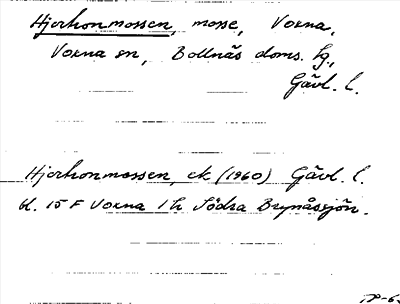 Hjorhonmossen, mosse, Voxna,
Voxna sn, Bollnäs doms. tg,
Gävl. l.
Hjorhonmossen, ek (1960) Gävl. l.
bl. 15 F Voxna 1 h Södra Brynåssjön.